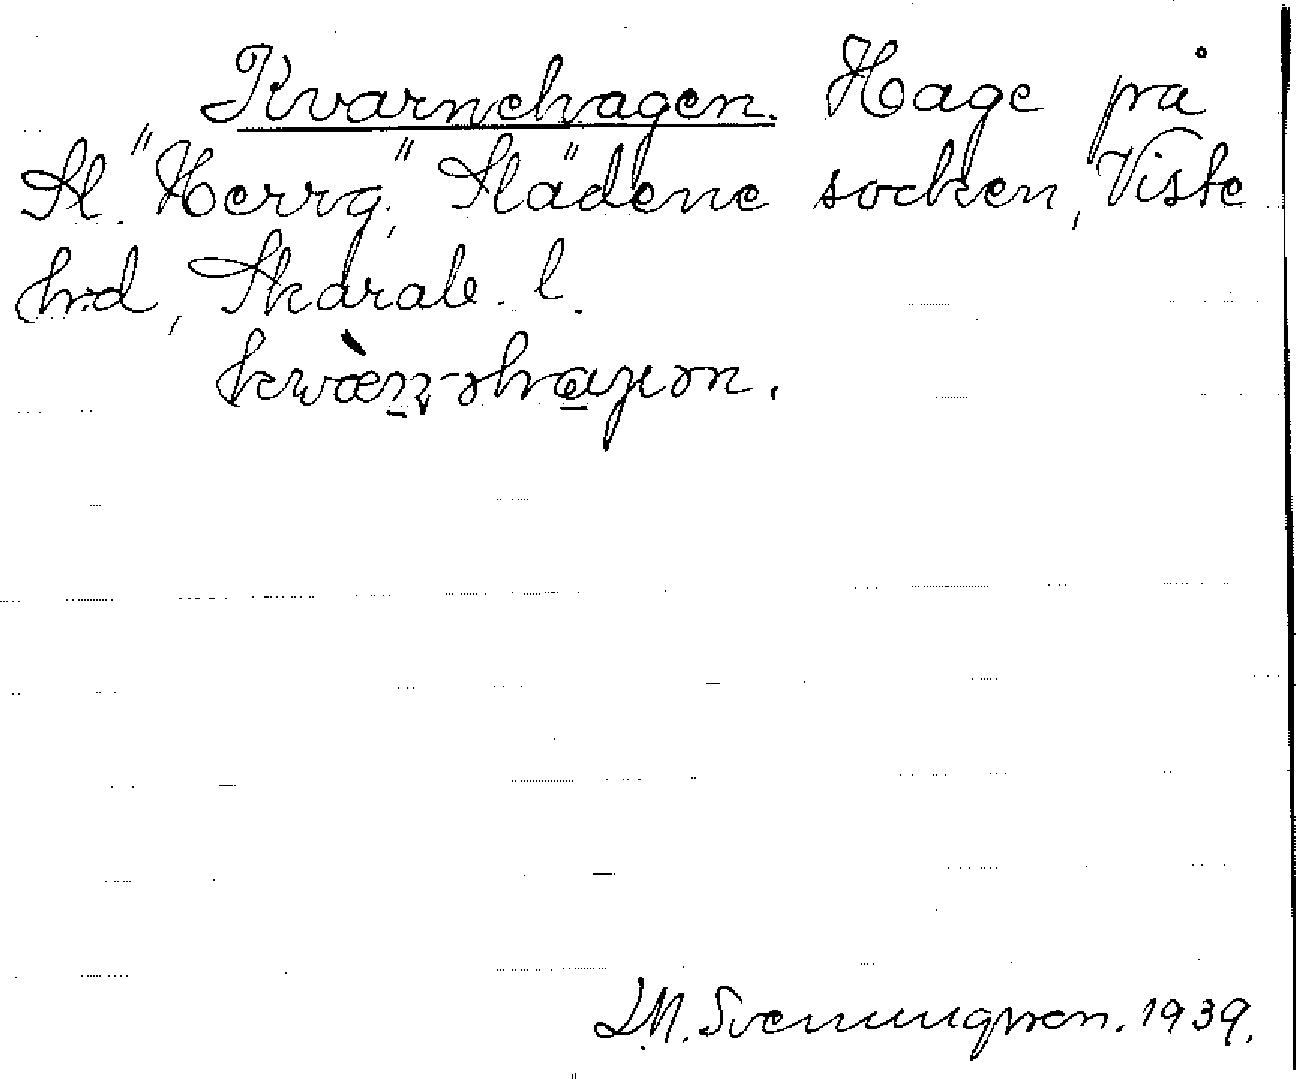 Kvarnehagen. Hage på
Sl. "Herrg.", Slädene socken, Viste
hrd, Skarab. l.
L.M. Svenungsson. 1939.